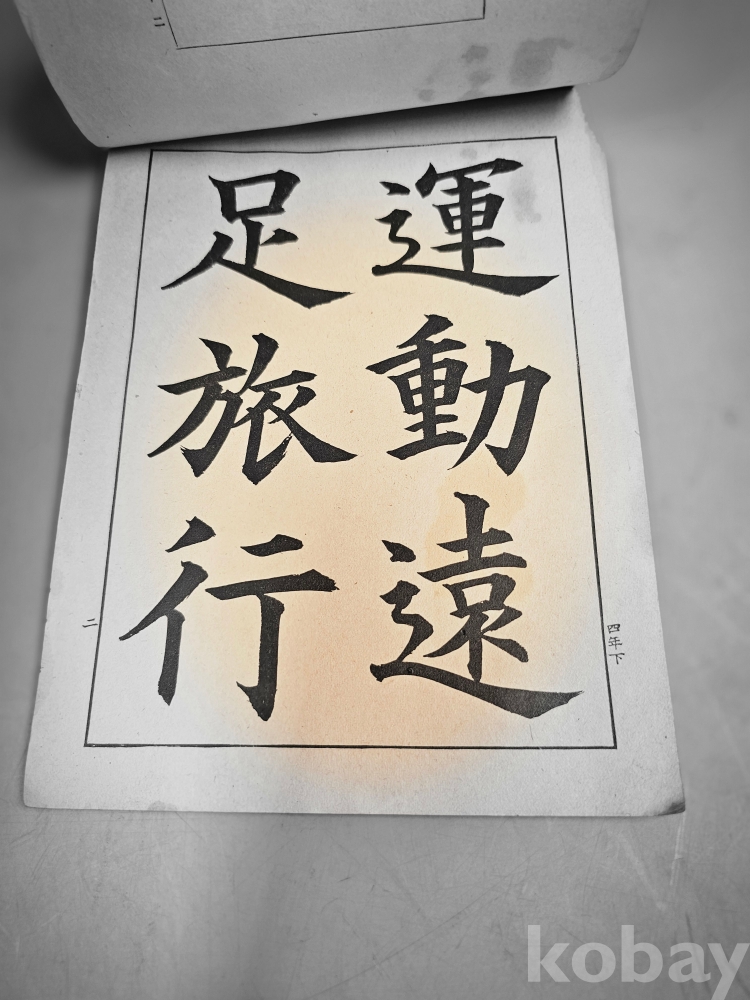 運動遠
足旅行
四年下
二
二
kobay